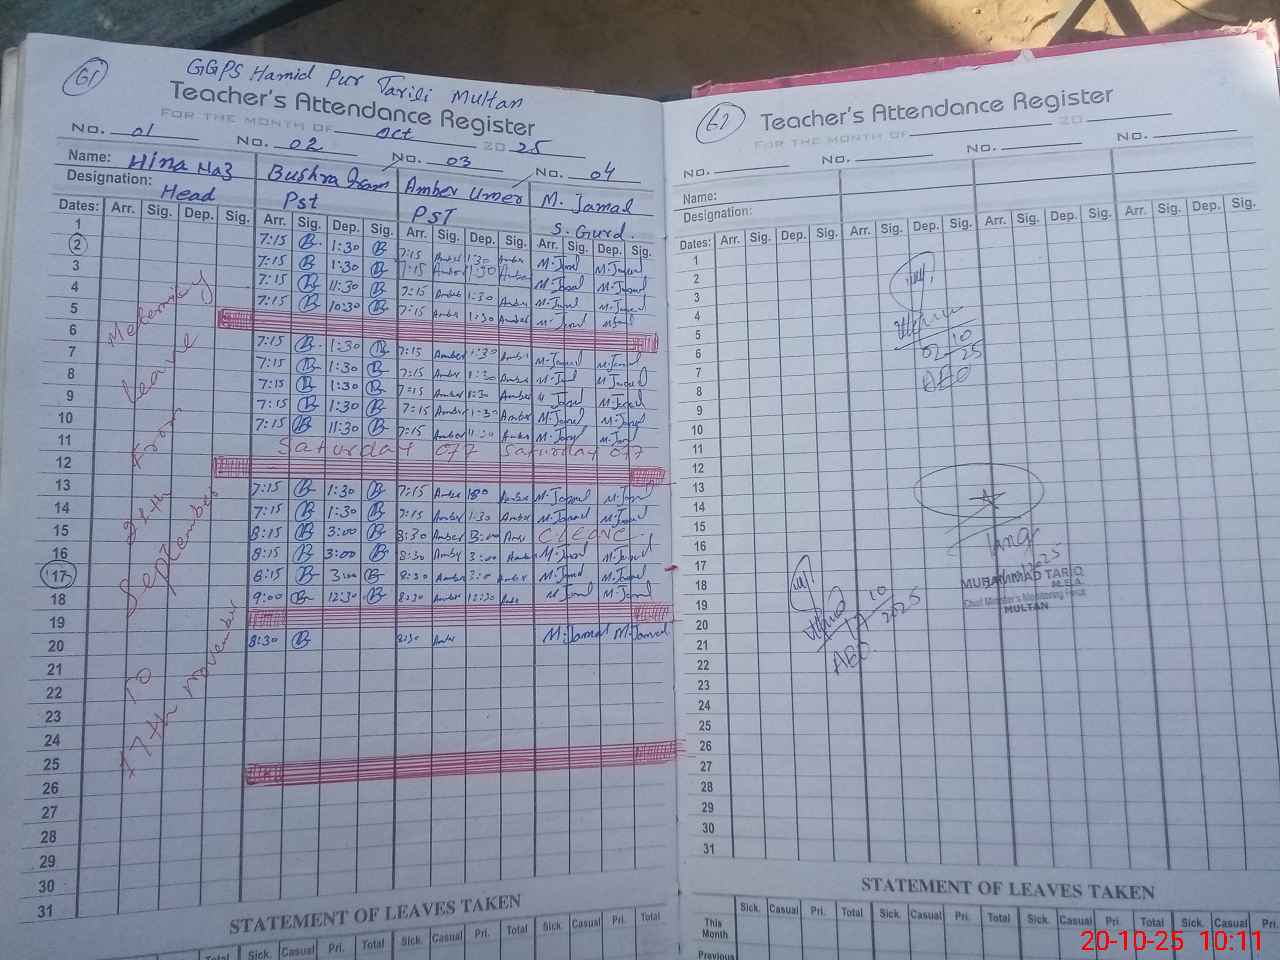 61
GGPS Hamid Pur Tarili Multan
Teacher's Attendance Register
FOR THE MONTH OF Oct 2025
No. 01 No. 02 No. 03 No. 04
Name: Hina Naz Bushra Ikram Amber Umer M. Jamal
Designation: Head Pst PST S. Gurd.
Dates: Arr. Sig. Dep. Sig. Arr. Sig. Dep. Sig. Arr. Sig. Dep. Sig. Arr. Sig. Dep. Sig.
1 7:15 B 1:30 B 7:15 Amber 1:30 Amber M. Jamal M. Jamal
2 7:15 B 1:30 B 7:15 Amber 1:30 Amber M. Jamal M. Jamal
3 7:15 B 11:30 B 7:15 Amber 1:30 Amber M. Jamal M. Jamal
4 7:15 B 10:30 B 7:15 Amber 1:30 Amber M. Jamal M. Jamal
5
6 7:15 B 1:30 B 7:15 Amber 1:30 Amber M. Jamal M. Jamal
7 7:15 B 1:30 B 7:15 Amber 1:30 Amber M. Jamal M. Jamal
8 7:15 B 1:30 B 7:15 Amber 1:30 Amber M. Jamal M. Jamal
9 7:15 B 1:30 B 7:15 Amber 1:30 Amber M. Jamal M. Jamal
10 7:15 B 11:30 B 7:15 Amber 11:30 Amber M. Jamal M. Jamal
11 Saturday off Saturday off
12
13 7:15 B 1:30 B 7:15 Amber 1:30 Amber M. Jamal M. Jamal
14 7:15 B 1:30 B 7:15 Amber 1:30 Amber M. Jamal M. Jamal
15 8:15 B 3:00 B 8:30 Amber 3:00 Amber C Leave
16 8:15 B 3:00 B 8:30 Amber 3:00 Amber M. Jamal M. Jamal
17 8:15 B 3:00 B 8:30 Amber 3:00 Amber M. Jamal M. Jamal
18 9:00 B 12:30 B 8:30 Amber 12:30 Amber M. Jamal M. Jamal
19
20 8:30 B 8:30 Amber M. Jamal M. Jamal
21
22
23
24
25
26
27
28
29
30
31
Leave
From
September
To
17th November
STATEMENT OF LEAVES TAKEN
Total Sick. Casual Pri. Total Sick. Casual Pri. Total Sick. Casual Pri. Total
62
Teacher's Attendance Register
FOR THE MONTH OF 20
No. No. No. No.
Name:
Designation:
Dates: Arr. Sig. Dep. Sig. Arr. Sig. Dep. Sig. Arr. Sig. Dep. Sig. Arr. Sig. Dep. Sig.
1
2
3
4
5
6
7
8
9
10
11
12
13
14
15
16
17
18
19
20
21
22
23
24
25
26
27
28
29
30
31
02 10
25
AEO
MUHAMMAD TARIQ
M.E.A.
Chief Minister's Monitoring Force
MULTAN
17 10
2025
AEO
STATEMENT OF LEAVES TAKEN
Sick. Casual Pri. Total Sick. Casual Pri. Total Sick. Casual Pri. Total Sick. Casual Pri.
This
Month
Previous
20-10-25 10:11